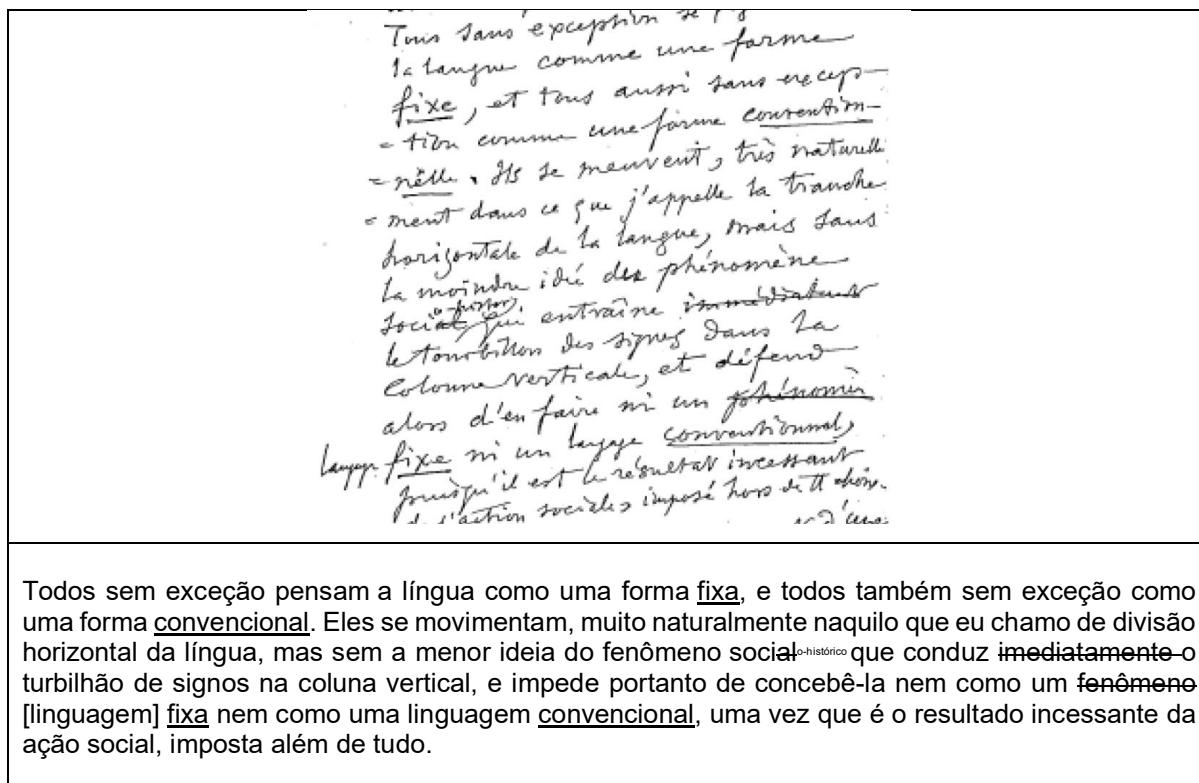 Tous sans exception se
la langue comme une forme
fixe, et tous aussi sans excep-
= tion comme une forme convention-
= nelle. Ils se meuvent, très naturelle
= ment dans ce que j'appelle la tranche
horizontale de la langue, mais sans
la moindre idée des phénomène
social o-histor. qui entraîne immédiatement
le tourbillon des signes dans la
colonne verticale, et défend
alors d'en faire ni un phénomèn
langage fixe ni un langage conventionnel,
puisqu'il est le résultat incessant
de l'action sociale, imposé hors de tt choix.
Todos sem exceção pensam a língua como uma forma fixa, e todos também sem exceção como
uma forma convencional. Eles se movimentam, muito naturalmente naquilo que eu chamo de divisão
horizontal da língua, mas sem a menor ideia do fenômeno socialo-histórico que conduz imediatamente o
turbilhão de signos na coluna vertical, e impede portanto de concebê-la nem como um fenômeno
[linguagem] fixa nem como uma linguagem convencional, uma vez que é o resultado incessante da
ação social, imposta além de tudo.